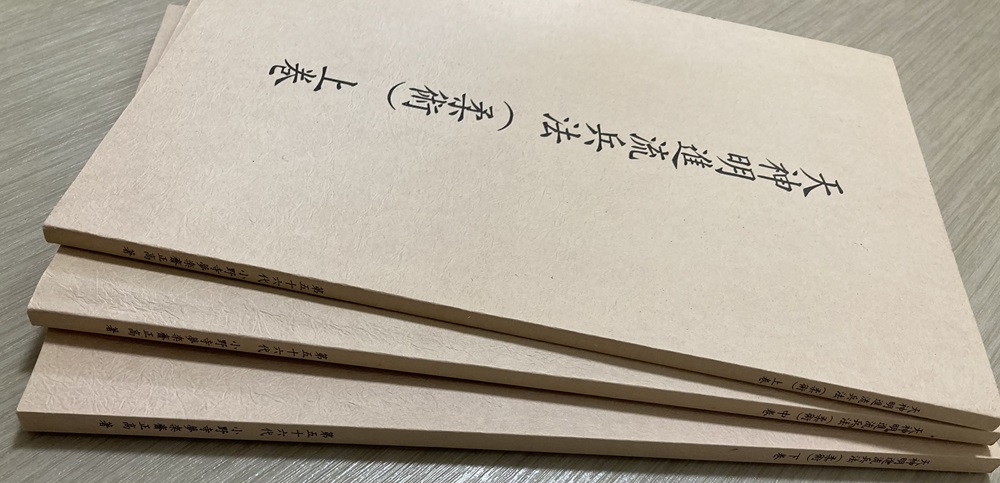 天神明進流兵法（柔術）上巻
天神明進流兵法（柔術）上巻 第五十六代 小野寺夢楽斎正高著
天神明進流兵法（柔術）中巻 第五十六代 小野寺夢楽斎正高著
天神明進流兵法（柔術）下巻 第五十六代 小野寺夢楽斎正高著